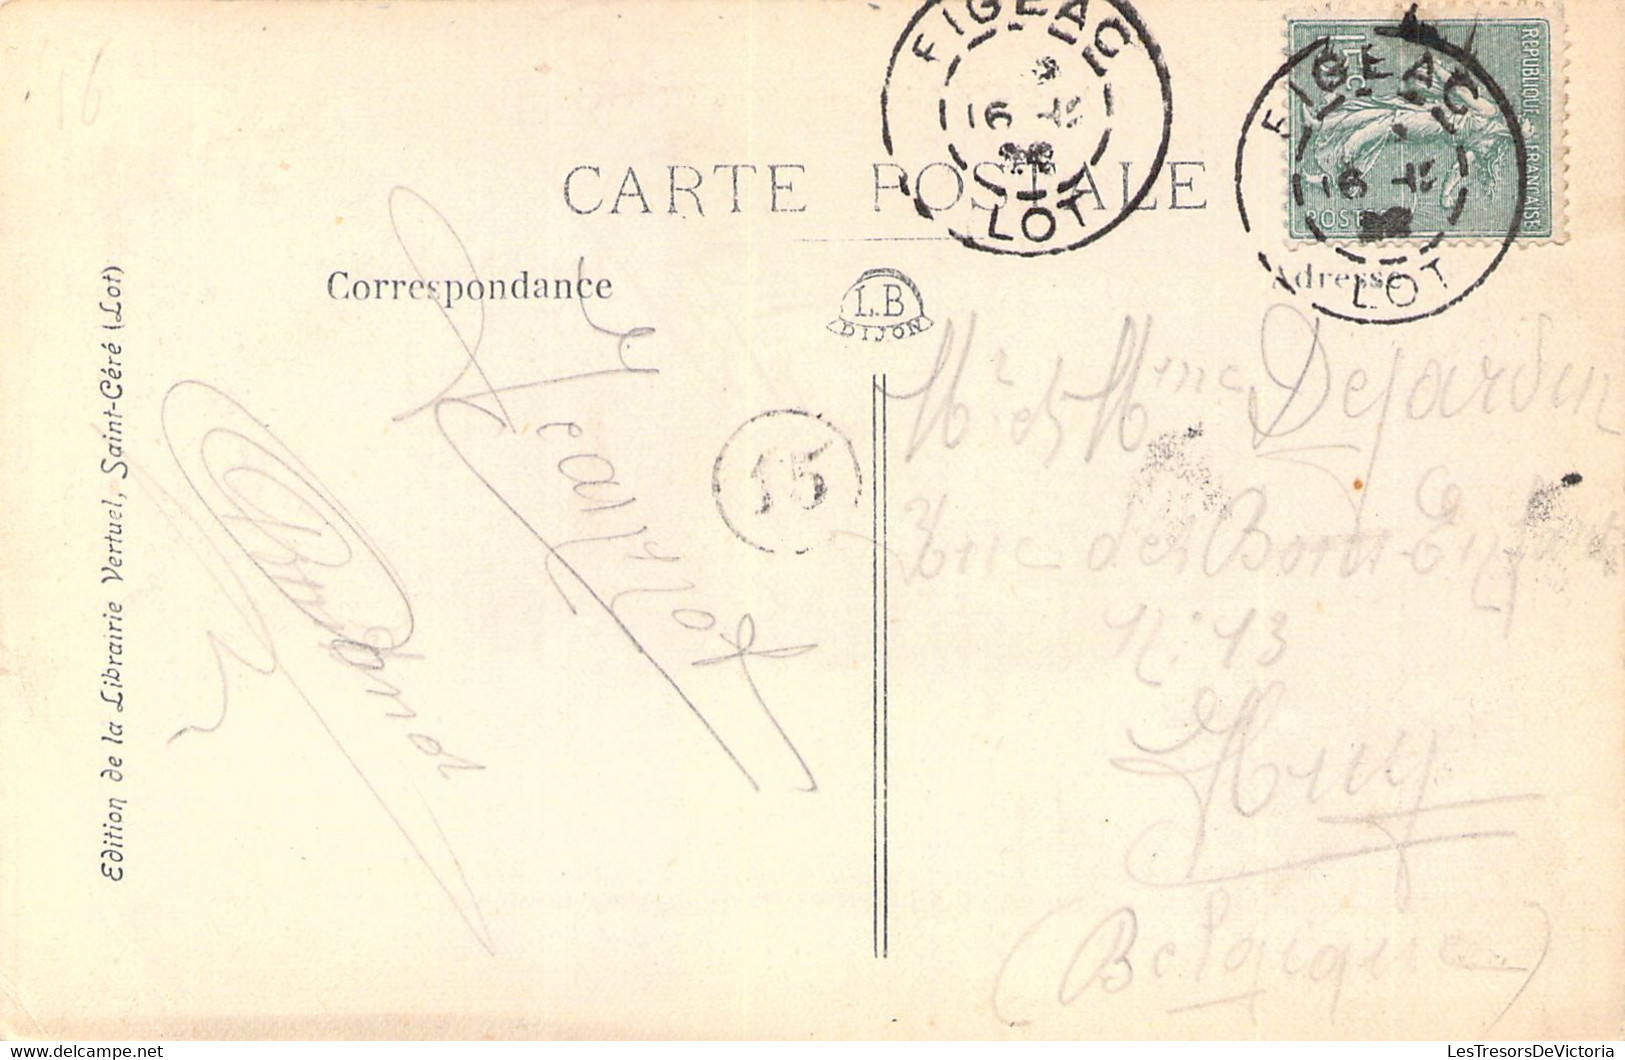 FIGEAC
16
LOT
REPUBLIQUE FRANÇAISE
POSTES
FIGEAC
16
LOT
CARTE POSTALE
Correspondance
L.B
DIJON
Adresse
15
16
Edition de la Librairie Vertuel, Saint-Céré (Lot)
Armand
Mr et Mme Dejardin
Rue des Bons-Enfants
N: 13
Huy
(Belgique)
LesTresorsDeVictoria